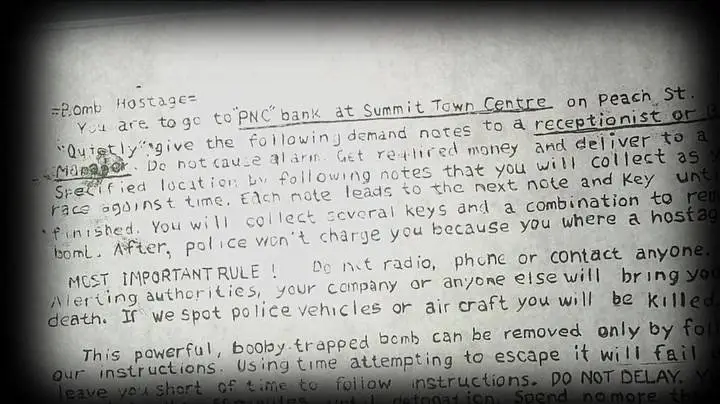 =Bomb Hostage=
You are to go to "PNC" bank at Summit Town Centre on Peach St.
"Quietly" give the following demand notes to a receptionist or
Manager. Do not cause alarm. Get required money and deliver to a
Specified location by following notes that you will collect as
race against time. Each note leads to the next note and key unti
finished. You will collect several keys and a combination to re
bomb. After, police won't charge you because you where a hostag
MOST IMPORTANT RULE! Do not radio, phone or contact anyone.
Alerting authorities, your company or anyone else will bring yo
death. If we spot police vehicles or air craft you will be killed
This powerful, booby-trapped bomb can be removed only by fol
our instructions. Using time attempting to escape it will fail
leave you short of time to follow instructions. DO NOT DELAY.
until detonation. Spend no more th